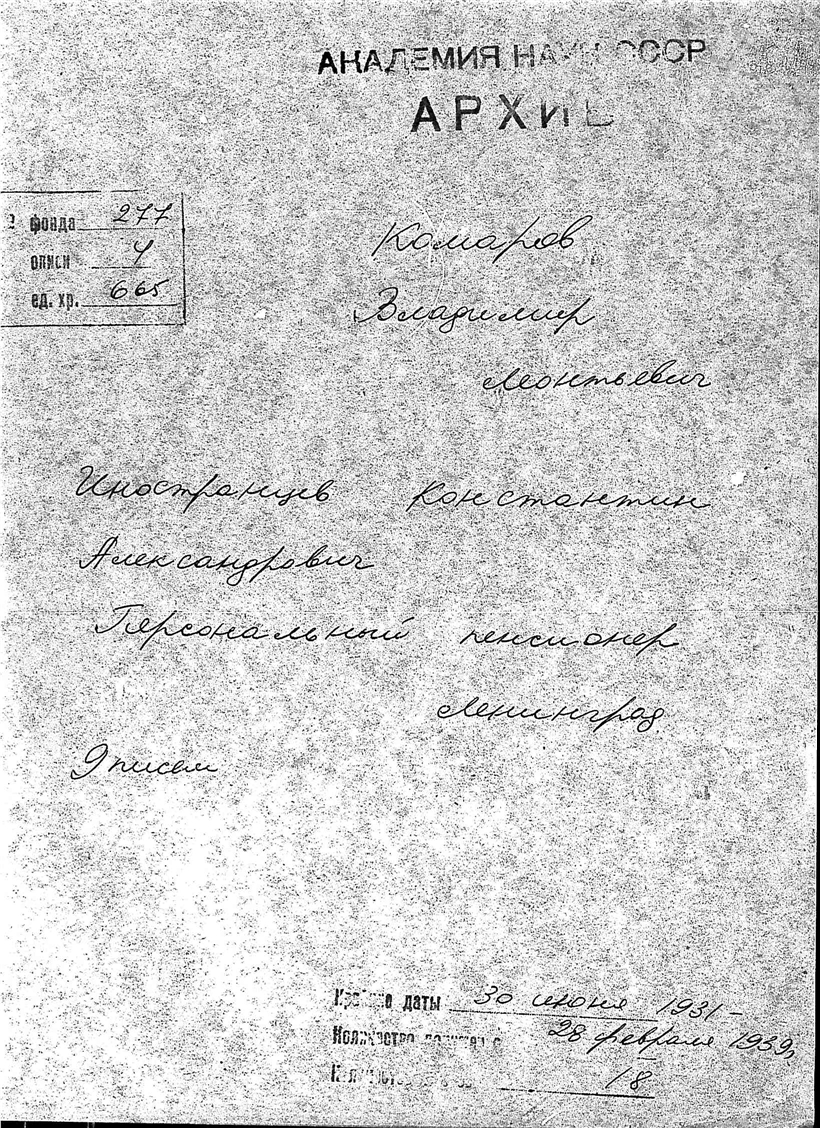 АКАДЕМИЯ НАУК СССР
АРХИВ
фонда 277
описи 4
ед. хр. 665
Комаров
Владимир
Леонтьевич
Иностранцев Константин
Александрович
Персональный пенсионер
Ленинград
9 писем
Крайние даты 30 июня 1931 –
Количество 28 февраля 1939г.
18